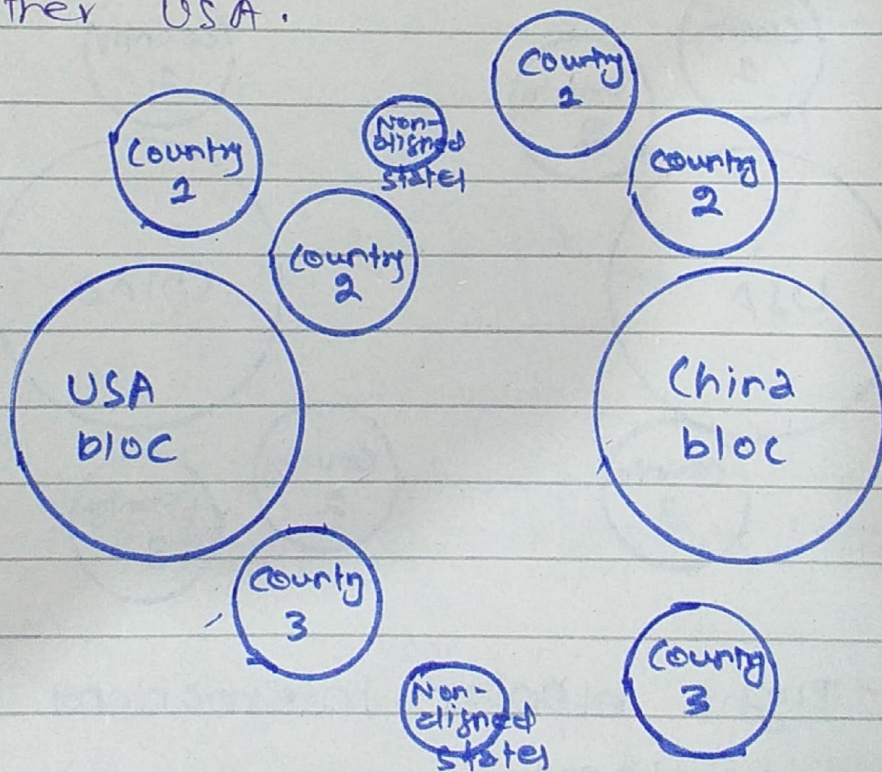 ther USA.
Country
1
Non-
aligned
states
Country
1
Country
2
Country
2
USA
bloc
China
bloc
Country
3
Non-
aligned
states
Country
3